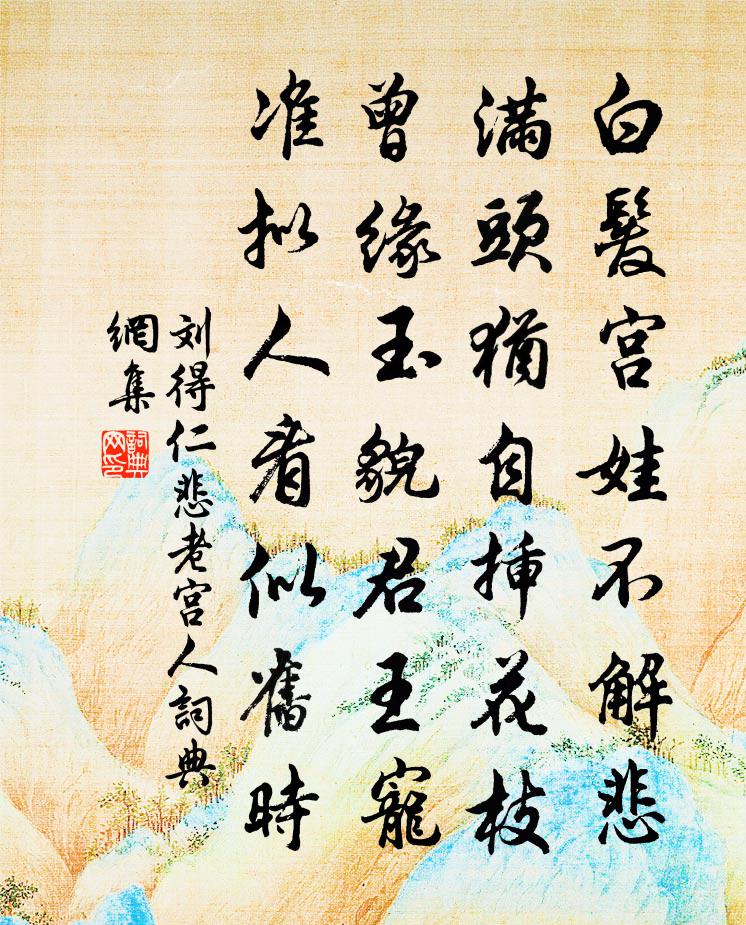 白髮宫娃不解悲
滿頭猶自插花枝
曾緣玉貌君王寵
准拟人看似舊時
刘得仁悲老宫人詞典
網集
詞典
网印